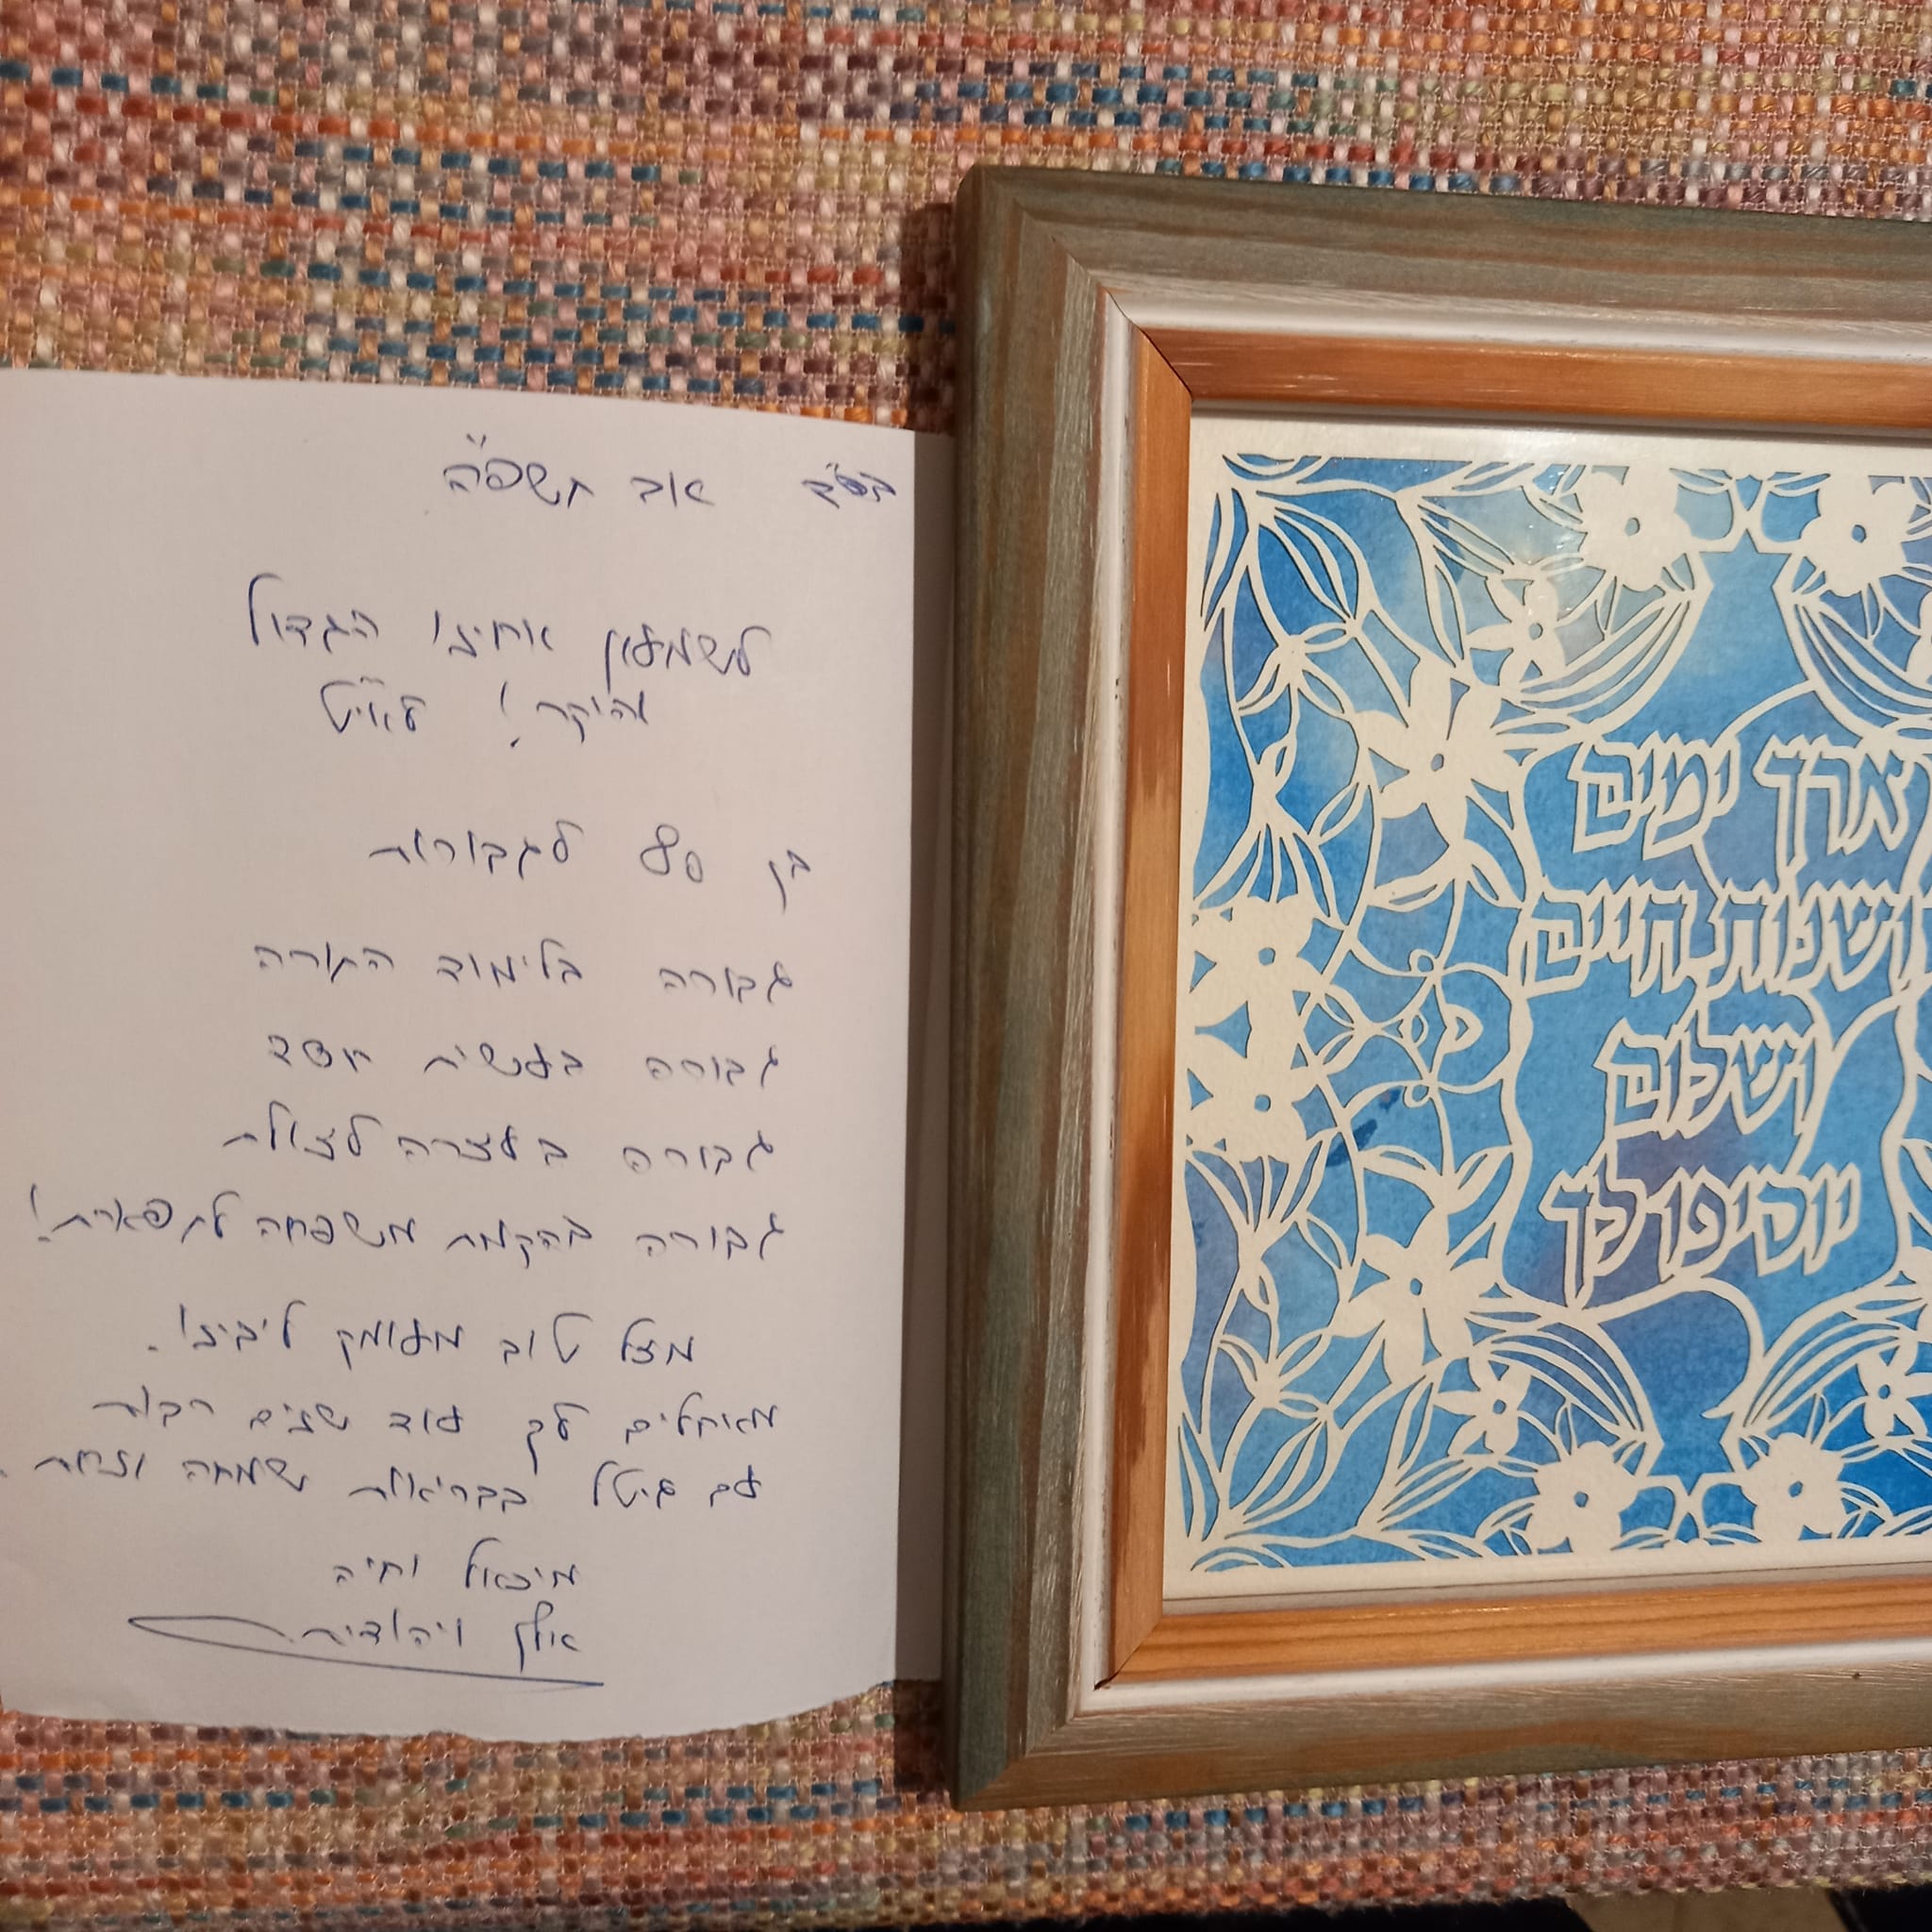 בס"ד אב תשפ"ה
לשמעון אחינו הגדול
והיקר! עמו"ש
בן 80 לגבורות
גבורה בלימוד התורה
גבורה בעשית חסד
גבורה בעזרה לזולת
גבורה בהקמת משפחה לתפארת!
מזל טוב מעומק ליבינו.
מאחלים לך עוד שנים רבות
עם גיטל בבריאות שמחה ונחת.
מיכאל וחיה
אילן ויהודית
ארך ימים
ושנות חיים
ושלום
יוסיפו לך